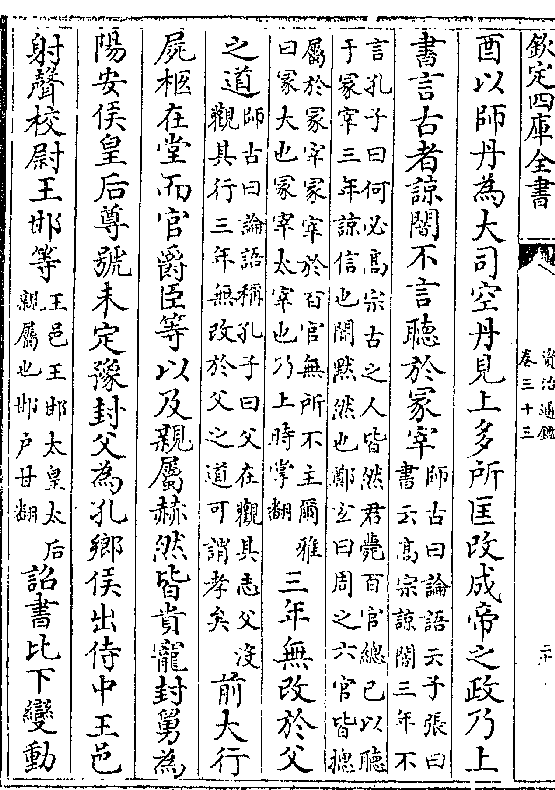 欽定四庫全書
資治通鑑
卷三十三
二十
酉以師丹為大司空丹見上多所匡改成帝之政乃上
書言古者諒闇不言聽於冡宰
師古曰論語云子張曰
書云髙宗諒闇三年不
言孔子曰何必髙宗古之人皆然君薨百官總已以聽
于冡宰三年諒信也闇黙然也鄭玄曰周之六官皆緫
屬於冡宰冡宰於百官無所不主爾雅
曰冡大也冡宰太宰也乃上時掌翻
三年無改於父
之道
師古曰論語稱孔子曰父在觀其志父沒
觀其行三年無改於父之道可謂孝矣
前大行
屍柩在堂而官爵臣等以及親屬赫然皆貴寵封舅為
陽安侯皇后尊號未定豫封父為孔鄉侯出侍中王邑
射聲校尉王邯等
王邑王邯太皇太后
親屬也邯户甘翻
詔書比下變動